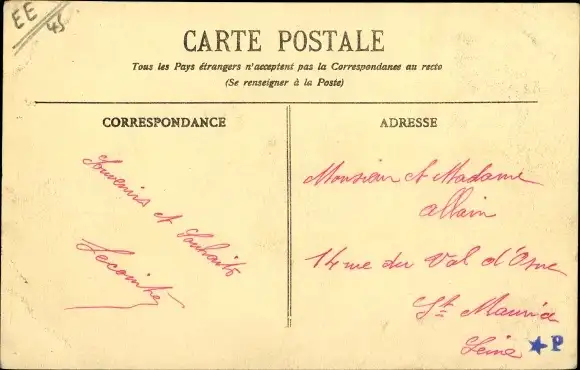 EE
45
CARTE POSTALE
Tous les Pays étrangers n'acceptent pas la Correspondance au recto
(Se renseigner à la Poste)
CORRESPONDANCE
Souvenirs et Souhaits
Lecomte
ADRESSE
Monsieur et Madame
Allain
14 rue du Val d'Osne
St Maurice
Seine
P